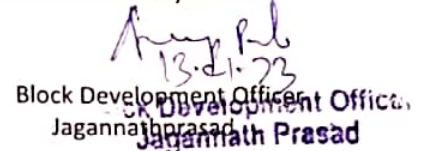 13.01.23
Block Development Officer
Block Development Officer,
Jagannathprasad
Jagannath Prasad